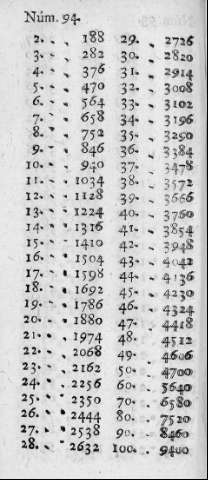 Núm. 94.
2. . . 188
3. . . 282
4. . . 376
5. . . 470
6. . . 564
7. . . 658
8. . . 752
9. . . 846
10. . . 940
11. . . 1034
12. . . 1128
13. . . 1224
14. . . 1316
15. . . 1410
16. . . 1504
17. . . 1598
18. . . 1692
19. . . 1786
20. . . 1880
21. . . 1974
22. . . 2068
23. . . 2162
24. . . 2256
25. . . 2350
26. . . 2444
27. . . 2538
28. . . 2632
29. . 2726
30. . 2820
31. . 2914
32. . 3008
33. . 3102
34. . 3196
35. . 3290
36. . 3384
37. . 3478
38. . 3572
39. . 3666
40. . 3760
41. . 3854
42. . 3948
43. . 4042
44. . 4136
45. . 4230
46. . 4324
47. . 4418
48. . 4512
49. . 4606
50. . 4700
60. . 5640
70. . 6580
80. . 7520
90. . 8460
100. . 9400